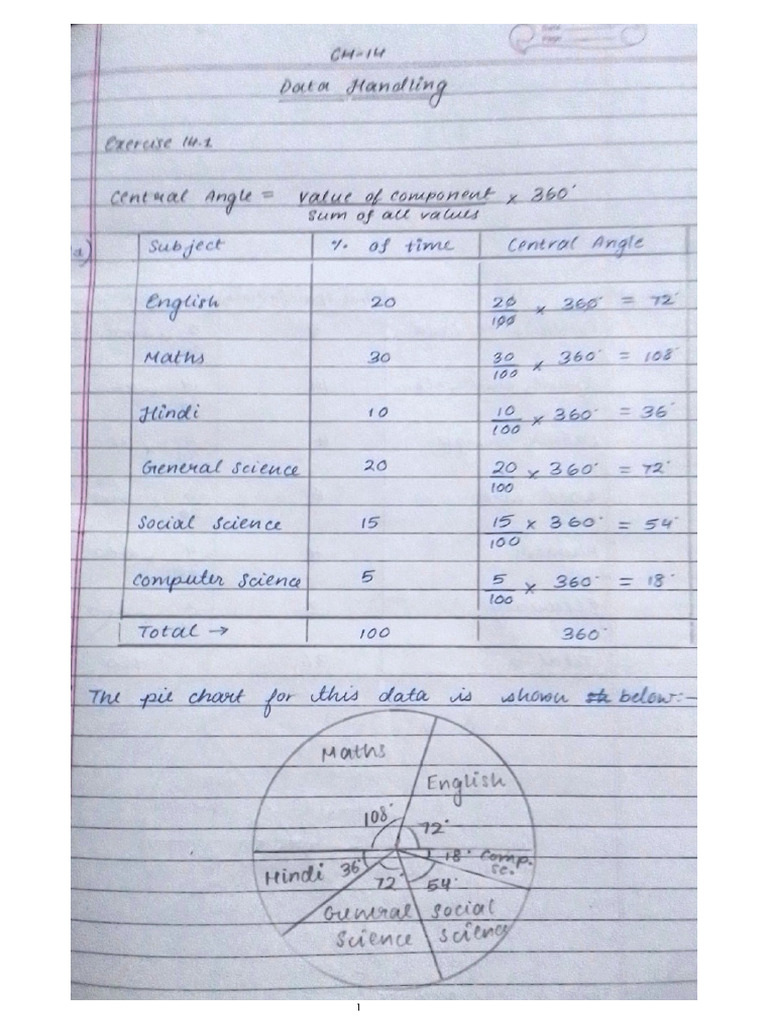 CH-14
Data Handling
Exercise 14.1
Central Angle = Value of component / Sum of all values × 360°
a)
Subject | % of time | Central Angle
English | 20 | 20/100 × 360° = 72°
Maths | 30 | 30/100 × 360° = 108°
Hindi | 10 | 10/100 × 360° = 36°
General Science | 20 | 20/100 × 360° = 72°
Social Science | 15 | 15/100 × 360° = 54°
Computer Science | 5 | 5/100 × 360° = 18°
Total → | 100 | 360°
The pie chart for this data is shown below:-
Maths
English
108°
72°
18° Comp.
Sc.
Hindi 36°
72° 54°
General Social
Science Science
1